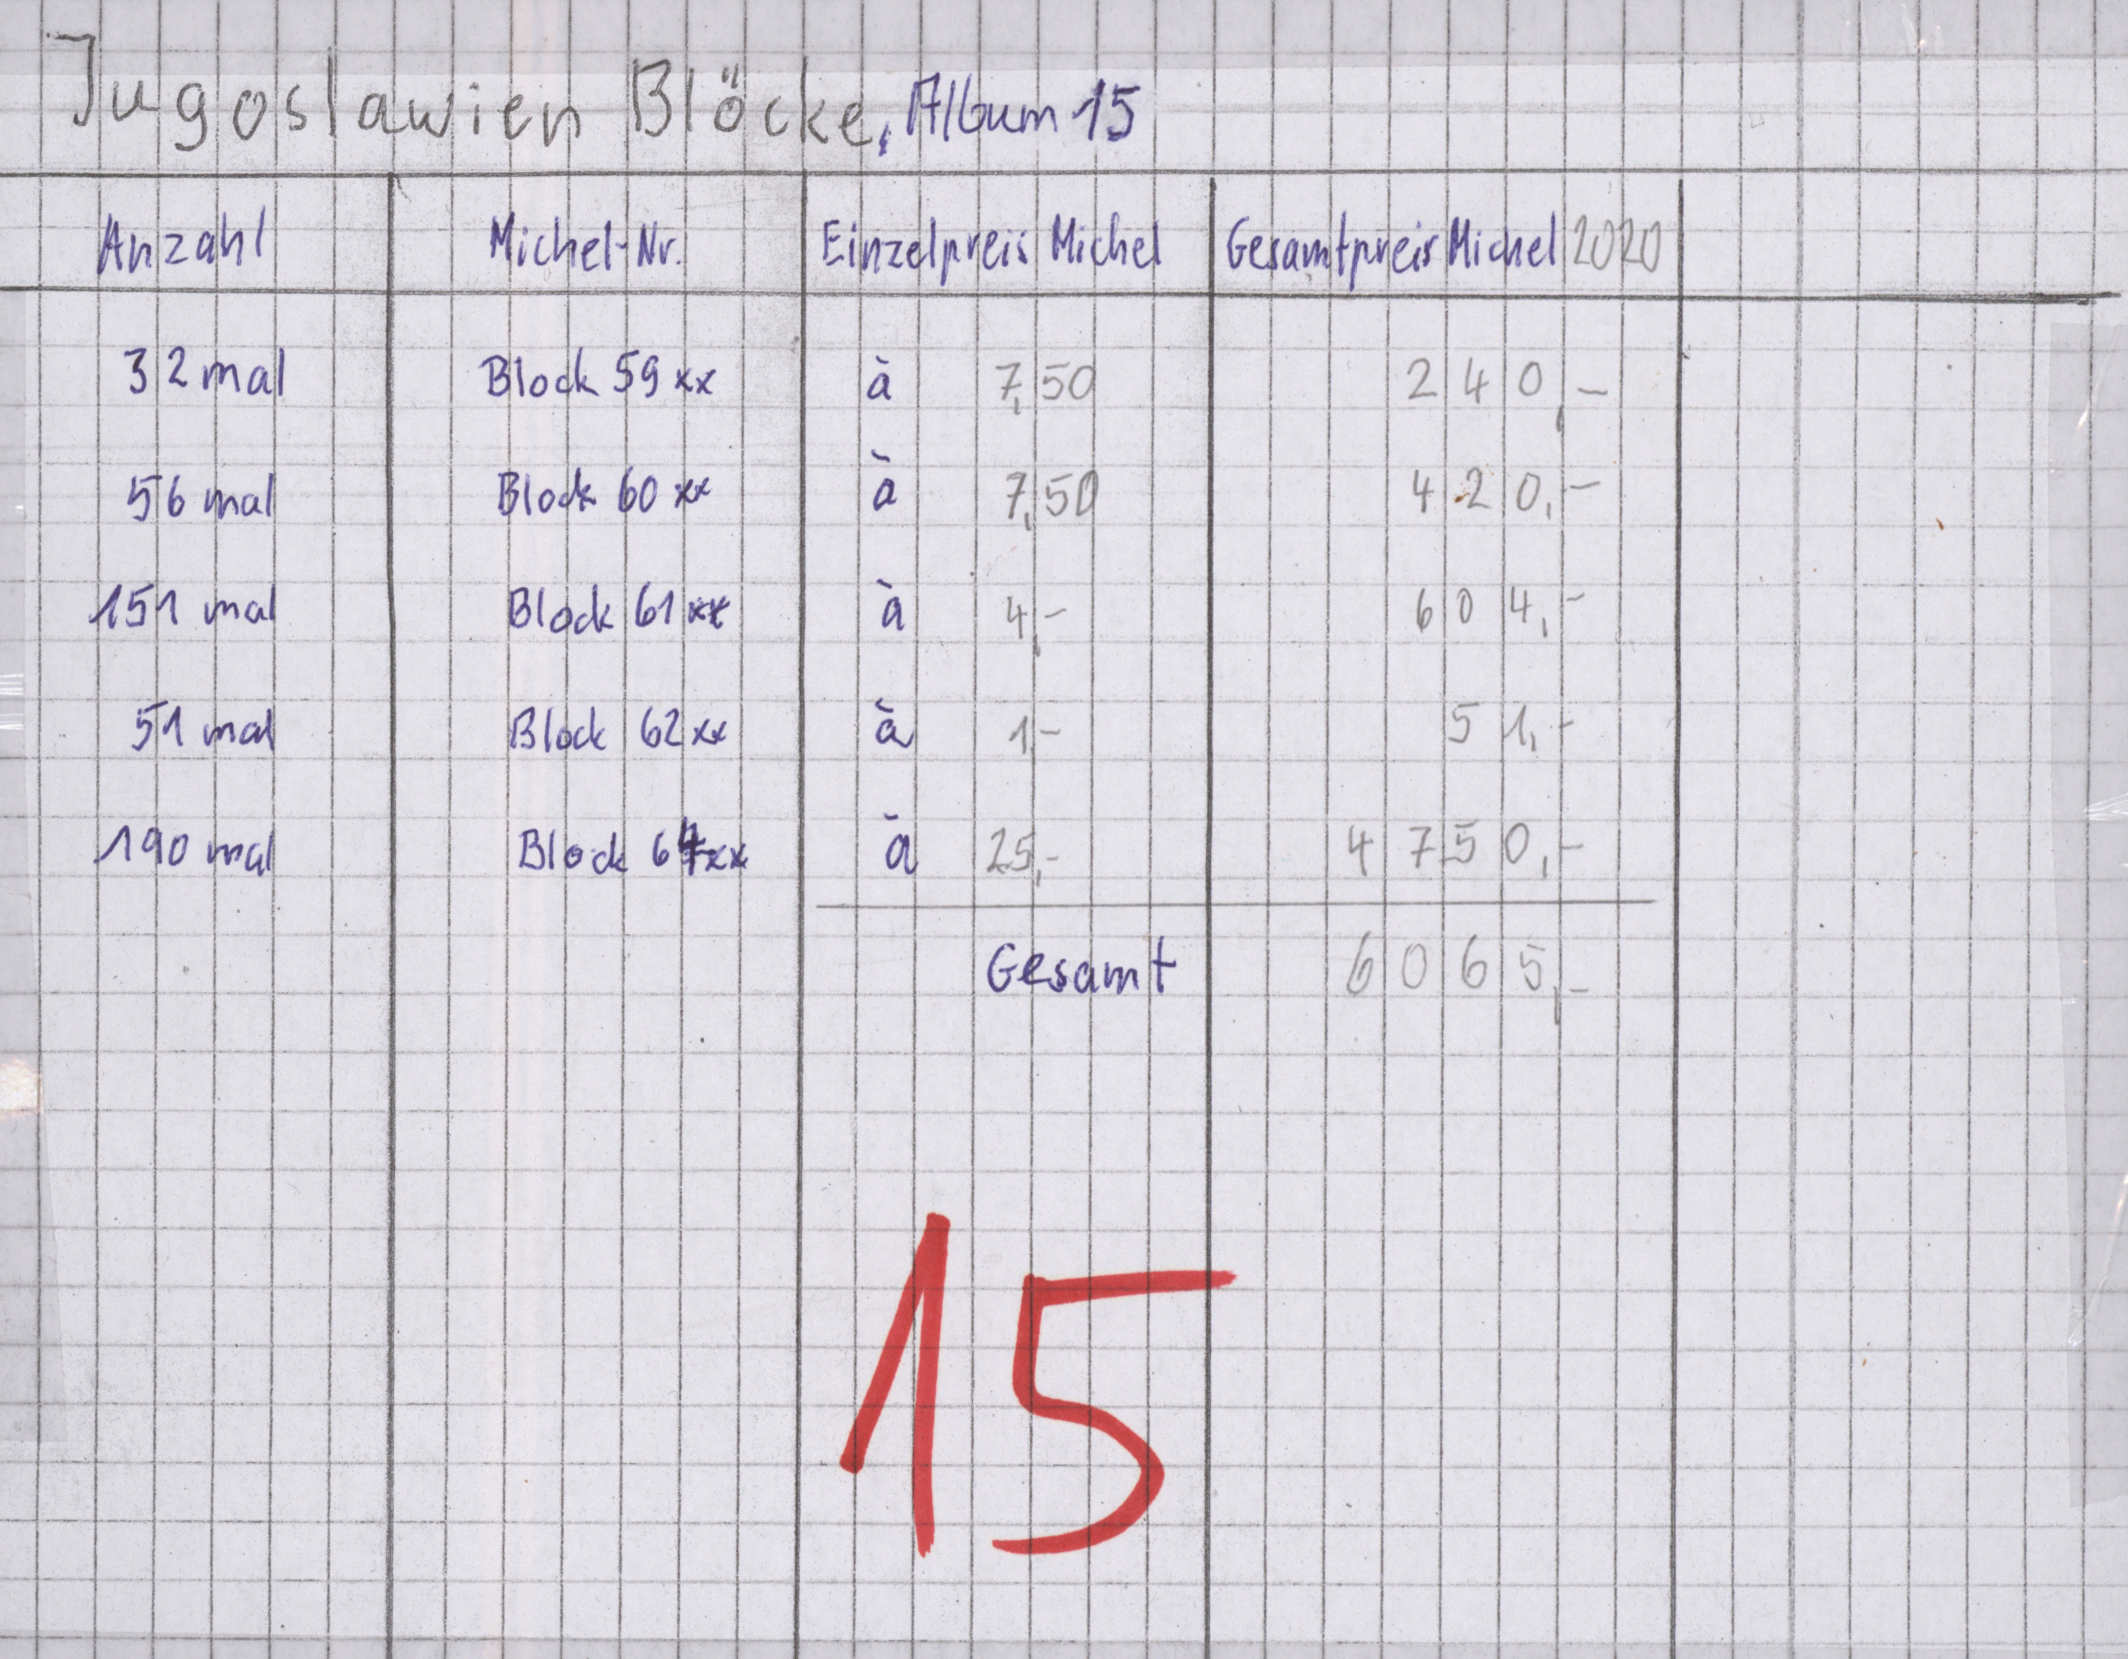 Jugoslawien Blöcke, Album 15
Anzahl Michel-Nr. Einzelpreis Michel Gesamtpreis Michel 2020
32 mal Block 59 xx à 7,50 240,-
56 mal Block 60 xx à 7,50 420,-
151 mal Block 61 xx à 4,- 604,-
51 mal Block 62 xx à 1,- 51,-
190 mal Block 64 xx à 25,- 4750,-
Gesamt 6065,-
15